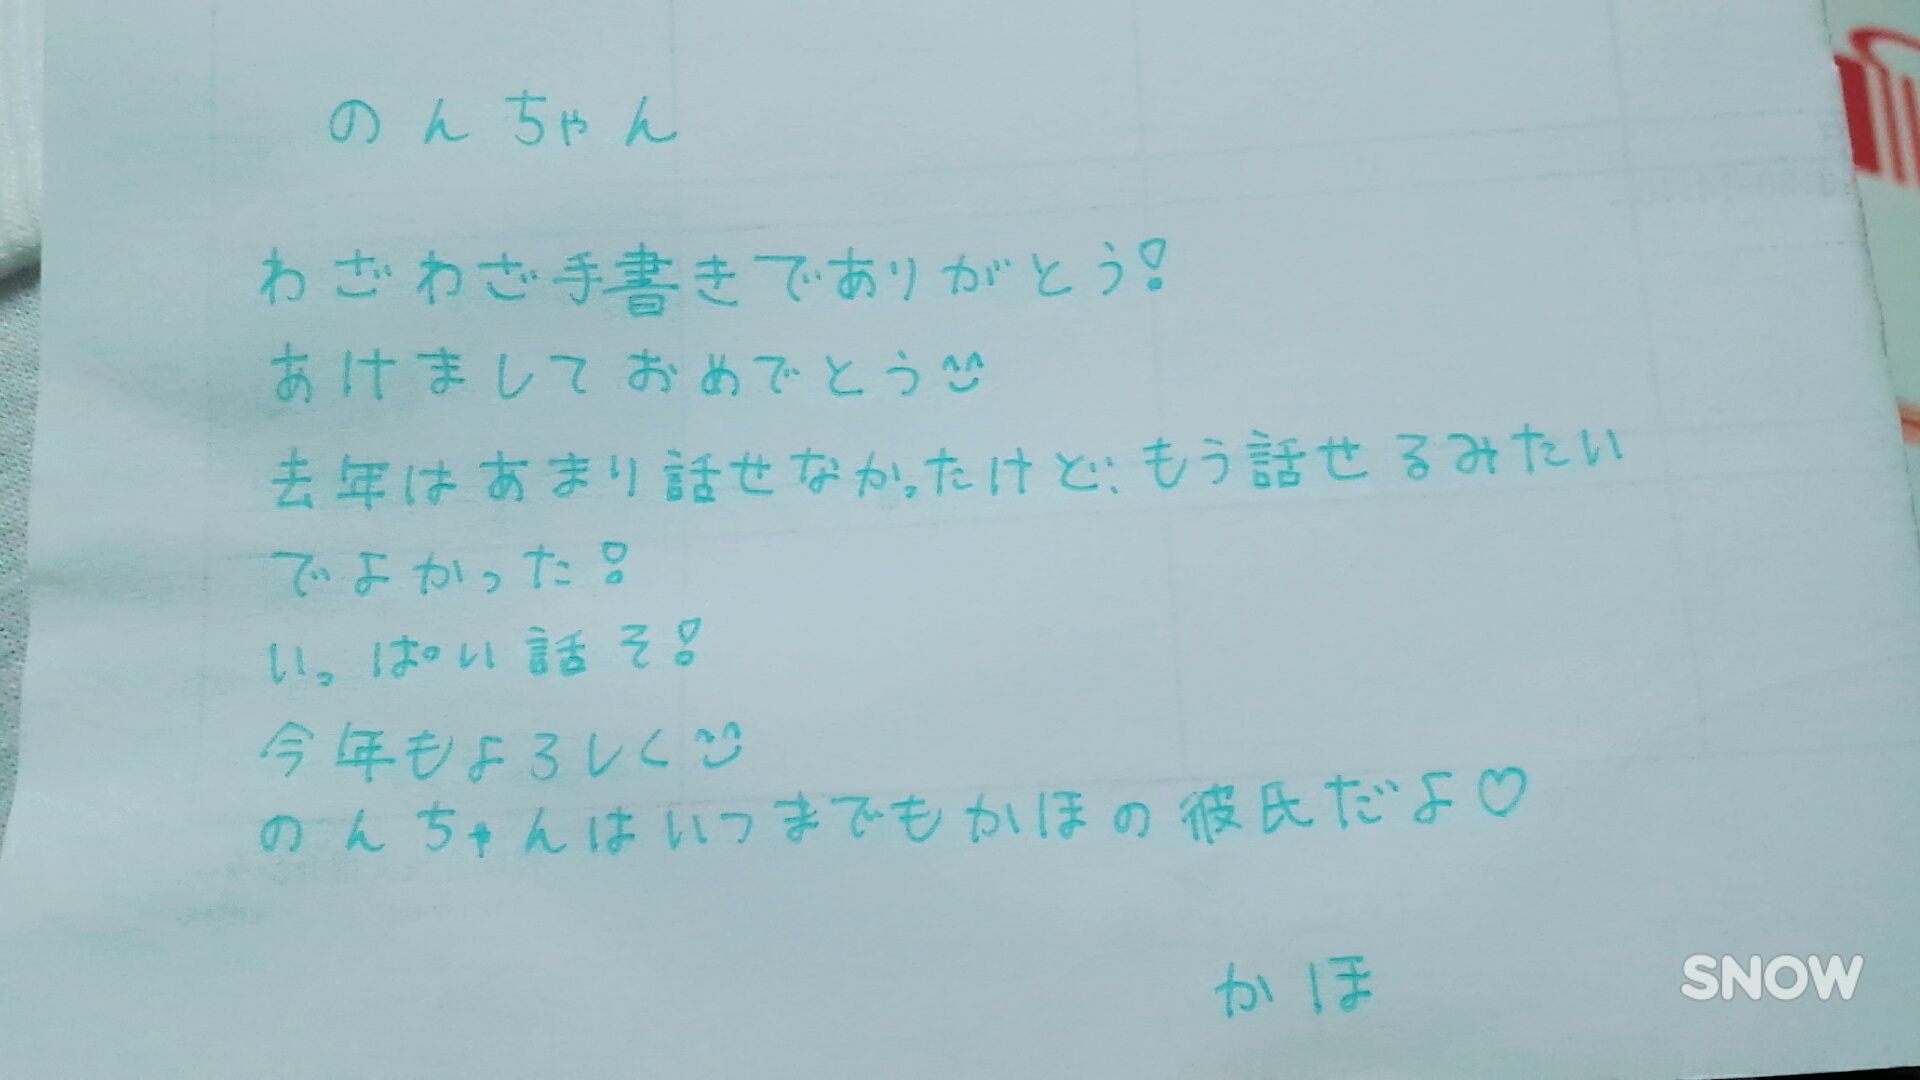 のんちゃん
わざわざ手書きでありがとう!
あけましておめでとう
去年はあまり話せなかったけど、もう話せるみたい
でよかった!
いっぱい話そ!
今年もよろしく
のんちゃんはいつまでもかほの彼氏だよ♡
かほ
SNOW